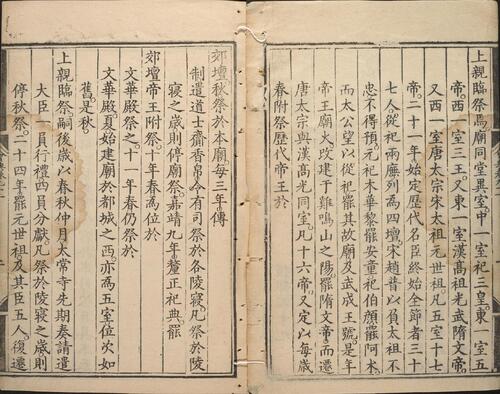 上親臨祭焉廟同堂異室中一室祀三皇東一室五
帝西一室三王又東一室漢高祖光武隋文帝
又西一室唐太宗宋太祖元世祖凡五室十七
帝二十一年始定歷代名臣終始全節者三十
七人從祀兩廡列為四壇宋趙普以負太祖不
忠不得預元祀木華黎罷安童祀伯顏罷阿术
而太公望以從祀罷其故廟及武成王號是年
帝王廟火改建于雞鳴山之陽罷隋文帝而遷
唐太宗與漢高光同室凡十六帝又定以每歲
春附祭歷代帝王於
郊壇秋祭於本廟每三年傳
制遣道士齋香帛令有司祭於各陵寢凡祭於陵
寢之歲則停廟祭嘉靖九年釐正祀典罷
郊壇帝王附祭十年春為位於
文華殿祭之十一年春仍祭於
文華殿夏始建廟於都城之西亦為五室位次如
舊是秋
上親臨祭嗣後歲以春秋仲月太常寺先期奏請遣
大臣一員行禮四員分獻凡祭於陵寢之歲則
停秋祭二十四年罷元世祖及其臣五人復遷